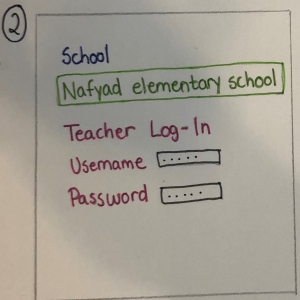 2
School
Nafyad elementary school
Teacher Log-In
Username .....
Password .....